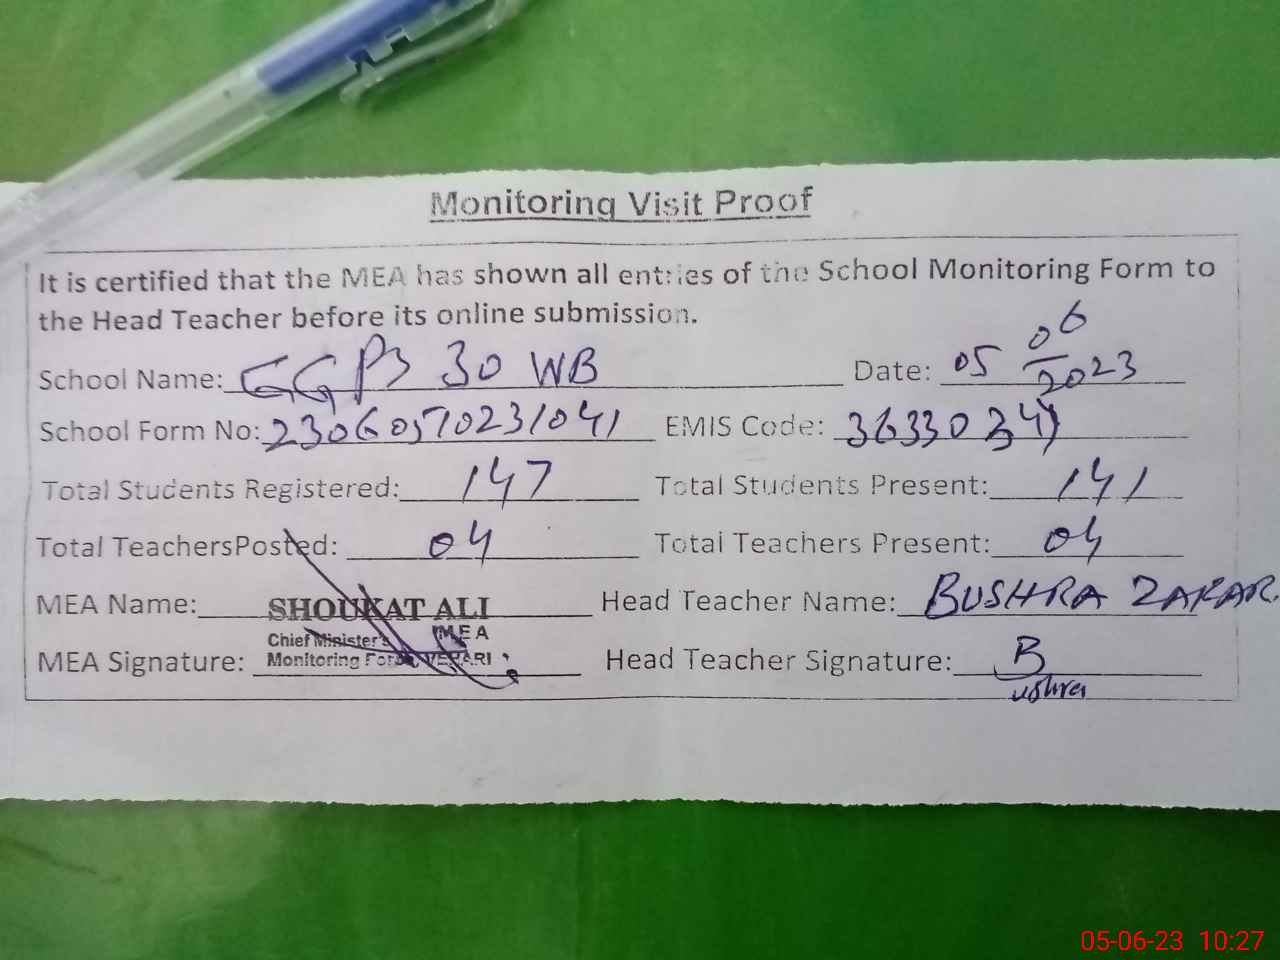 Monitoring Visit Proof
It is certified that the MEA has shown all entries of the School Monitoring Form to
the Head Teacher before its online submission.
School Name: GGPS 30 WB Date: 05 06 2023
School Form No: 23060570231041 EMIS Code:
Total Students Registered: 147 Total Students Present: 141
Total TeachersPosted: 04 Total Teachers Present: 04
MEA Name: SHOUKAT ALI Head Teacher Name: BUSHRA ZAKAR
Chief Minister's MEA
MEA Signature: Monitoring Force VEHARI Head Teacher Signature: Bushra
05-06-23 10:27